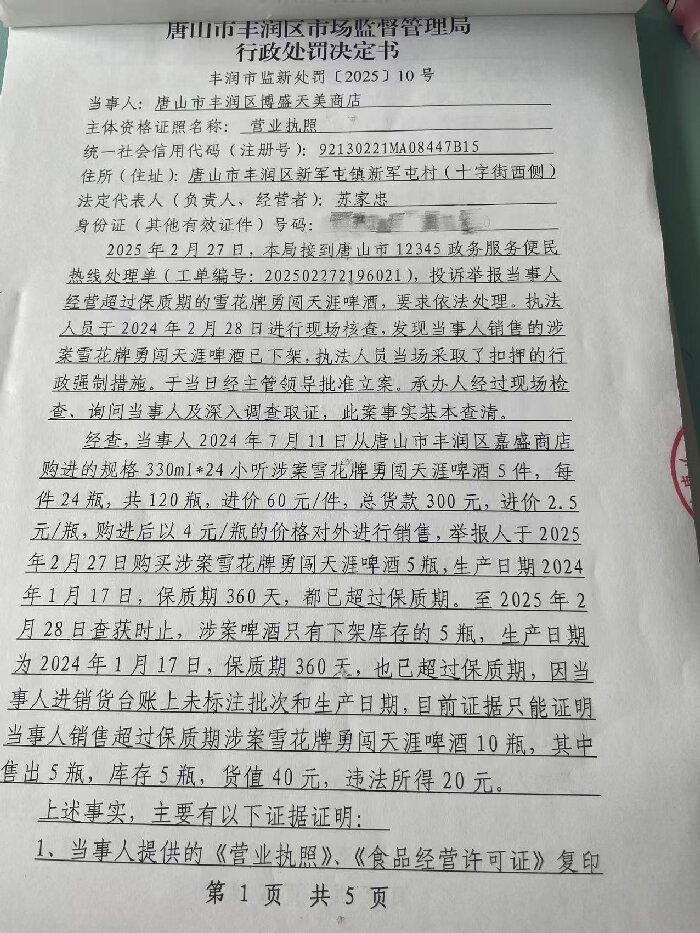 唐山市丰润区市场监督管理局
行政处罚决定书
丰润市监新处罚〔2025〕10号
当事人：唐山市丰润区博盛天美商店
主体资格证照名称：营业执照
统一社会信用代码（注册号）：92130221MA08447B15
住所（住址）：唐山市丰润区新军屯镇新军屯村（十字街西侧）
法定代表人（负责人、经营者）：苏家忠
身份证（其他有效证件）号码：
2025年2月27日，本局接到唐山市12345政务服务便民
热线处理单（工单编号：202502272196021），投诉举报当事人
经营超过保质期的雪花牌勇闯天涯啤酒，要求依法处理。执法
人员于2024年2月28日进行现场核查，发现当事人销售的涉
案雪花牌勇闯天涯啤酒已下架，执法人员当场采取了扣押的行
政强制措施。于当日经主管领导批准立案。承办人经过现场检
查、询问当事人及深入调查取证，此案事实基本查清。
经查，当事人2024年7月11日从唐山市丰润区嘉盛商店
购进的规格330ml*24小听涉案雪花牌勇闯天涯啤酒5件，每
件24瓶，共120瓶，进价60元/件，总货款300元，进价2.5
元/瓶，购进后以4元/瓶的价格对外进行销售，举报人于2025
年2月27日购买涉案雪花牌勇闯天涯啤酒5瓶，生产日期2024
年1月17日，保质期360天，都已超过保质期。至2025年2
月28日查获时止，涉案啤酒只有下架库存的5瓶，生产日期
为2024年1月17日，保质期360天，也已超过保质期，因当
事人进销货台账上未标注批次和生产日期，目前证据只能证明
当事人销售超过保质期涉案雪花牌勇闯天涯啤酒10瓶，其中
售出5瓶，库存5瓶，货值40元，违法所得20元。
上述事实，主要有以下证据证明：
1、当事人提供的《营业执照》、《食品经营许可证》复印
第1页 共5页